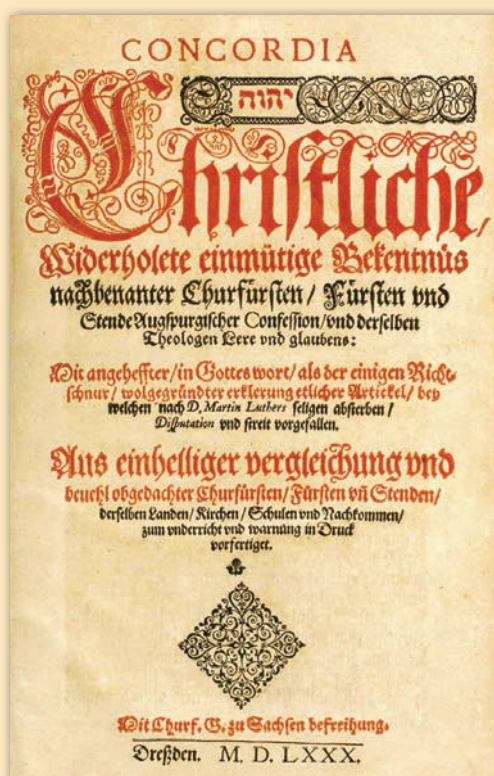 CONCORDIA
יהוה
Chriſtliche,
Widerholete einmütige Bekentnüs
nachbenanter Churfürſten / Fürſten vnd
Stende Augſpurgiſcher Confeſſion / vnd derſelben
Theologen Lere vnd glaubens:
Mit angeheffter / in Gottes wort / als der einigen Richt⸗
ſchnur / wolgegründter erklerung etlicher Artickel / bey
welchen nach D. Martin Luthers ſeligen abſterben /
Diſputation vnd ſtreit vorgefallen.
Aus einhelliger vergleichung vnd
beuehl obgedachter Churfürſten / Fürſten vñ Stenden /
derſelben Landen / Kirchen / Schulen vnd Nachkommen /
zum vnderricht vnd warnung in Druck
vorfertiget.
Mit Churf. G. zu Sachſen befreihung.
Dreßden. M. D. LXXX.